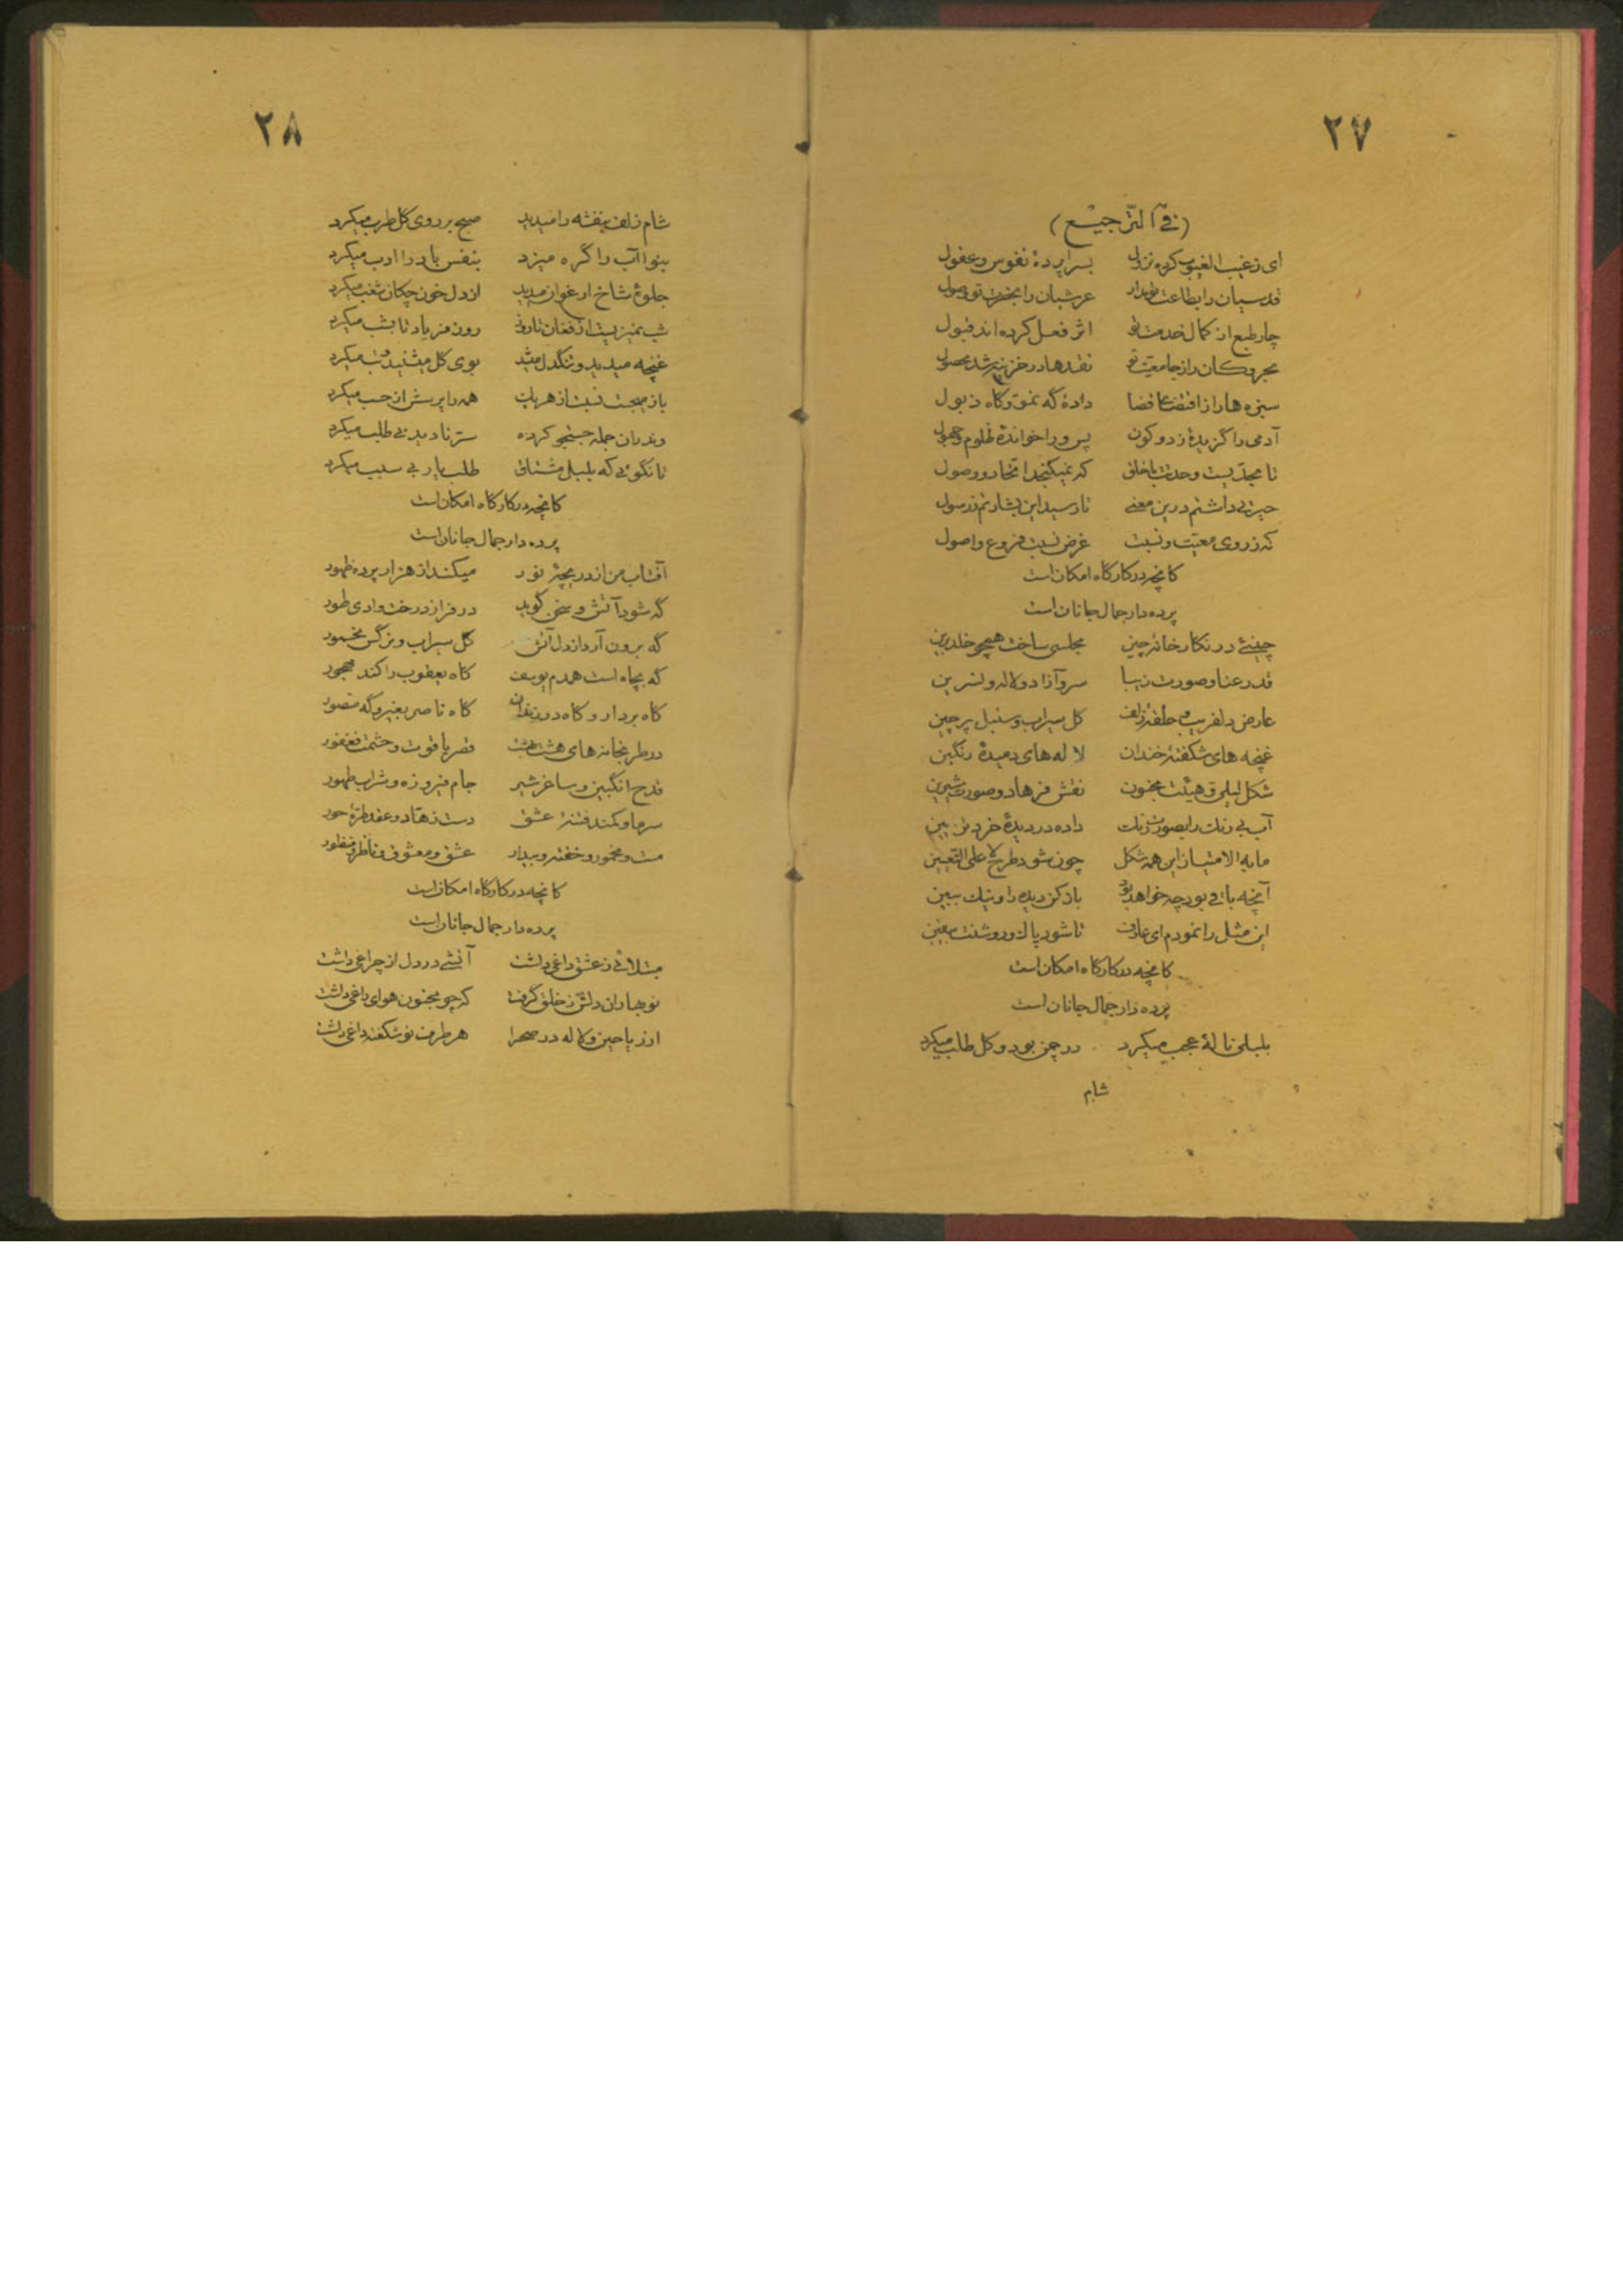 ۲۷
(فی الترجیع)
ای ز غیب الغیوب کرده نزول بسراپردهٔ نفوس و عقول
قدسیان را بطاعت عرشیان را بحضرت تو وصول
چار طبع از کمال خدمت تو اثر فعل کرده اند قبول
بحر و کان را ز جامعیت تو نقدها در خزینه شد محصول
سبزه ها را ز اقتضای قضا دادهٔ گه نمو و گاه ذبول
آدمی را گزیدهٔ ز دو کون پس ورا خواندهٔ ظلوم و جهول
تا مجدیست وحدت با خلق که نمیگنجد اتحاد و وصول
حیرتی داشتم درین معنی تا رسید این بشارتم ز رسول
که ز روی معیت و نسبت غرض نسبت فروع و اصول
کانچه در کارگاه امکان است
پرده دار جمال جانان است
چینئی در نگارخانه چین مجلسی ساخت همچو خلد برین
قد رعنا و صورت زیبا سرو آزاد و لاله و نسرین
عارض دلفریب و حلقهٔ زلف گل سیراب و سنبل پرچین
غنچه های شکفتهٔ خندان لاله های دمیدهٔ رنگین
شکل لیلی و هیئت مجنون نقش فرهاد و صورت شیرین
آب بی رنگ را بصورت رنگ داده در دیدهٔ خرد بین
مابه الامتیاز این همه شکل چون شود طرح لا علی التعیین
آنچه باقی بود چه خواهد بود باز کن دیده را و نیک ببین
این مثل را نمودم ای عارف تا شود پاک و روشنت بیقین
کانچه در کارگاه امکان است
پرده دار جمال جانان است
بلبلی نالهٔ عجب میکرد در چمن بود و گل طلب میکرد
شام
۲۸
شام زلف بنفشه را میدید صبح بر روی گل طرب میکرد
بنوا آب را گره میزد بنفس باد را ادب میکرد
جلوهٔ شاخ ارغوان میدید از دل خون چکان شغب میکرد
شب نمیزیست از فغان تا روز روز فریاد تا بشب میکرد
غنچه میدید و تنگدل میشد بوی گل میشنید و تب میکرد
باز میجست نسبت از هر یک همه را پرسش از حسب میکرد
وندران جمله جستجو کرده ستر نادیدنی طلب میکرد
تا نگوئی که بلبل مشتاق طلب یار بی سبب میکرد
کانچه در کارگاه امکان است
پرده دار جمال جانان است
آفتاب من از دریچهٔ نور میکند از هزار پرده ظهور
گه شود آتش و سخن گوید در فراز درخت وادی طور
گه برون آرد از دل آتش گل سیراب و نرگس مخمور
گه بچاه است همدم یوسف گاه یعقوب را کند مهجور
گاه بردار و گاه در زندان گاه ناصر بغیر و گه منصور
در طربخانه های هشت بهشت قصر یاقوت و حشمت فغفور
قدح انگبین و ساغر شیر جام فیروزه و شراب طهور
سر ما و کمند فتنهٔ عشق دست زهاد و عقد طرهٔ حور
مست و مخمور و خفته و بیدار عشق و معشوق و ناظر و منظور
کانچه در کارگاه امکان است
پرده دار جمال جانان است
مبتلائی ز عشق داغی داشت آتشی در دل از چراغی داشت
نوبهاران دلش ز خلق گرفت که چو مجنون هوای داغی داشت
از ریاحین و لاله در صحرا هر طرف نو شکفته داغی داشت